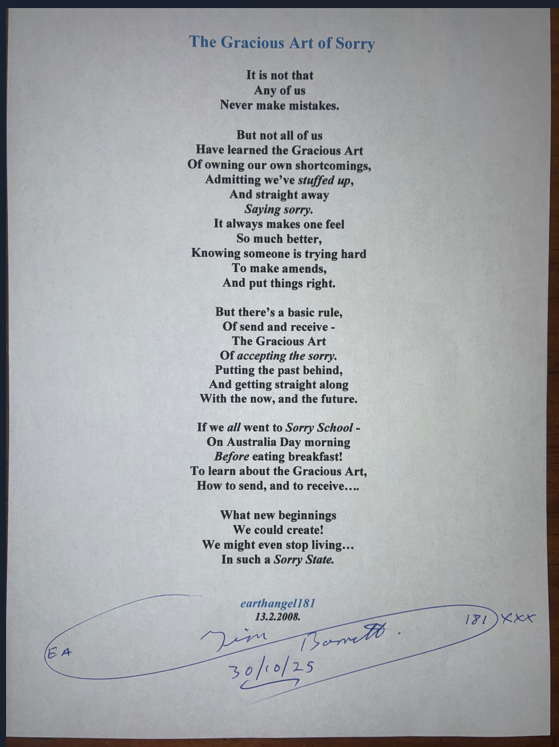 The Gracious Art of Sorry
It is not that
Any of us
Never make mistakes.
But not all of us
Have learned the Gracious Art
Of owning our own shortcomings,
Admitting we've stuffed up,
And straight away
Saying sorry.
It always makes one feel
So much better,
Knowing someone is trying hard
To make amends,
And put things right.
But there's a basic rule,
Of send and receive -
The Gracious Art
Of accepting the sorry.
Putting the past behind,
And getting straight along
With the now, and the future.
If we all went to Sorry School -
On Australia Day morning
Before eating breakfast!
To learn about the Gracious Art,
How to send, and to receive….
What new beginnings
We could create!
We might even stop living…
In such a Sorry State.
earthangel181
13.2.2008.
EA Jim Barrett. 181 XXX
30/10/25